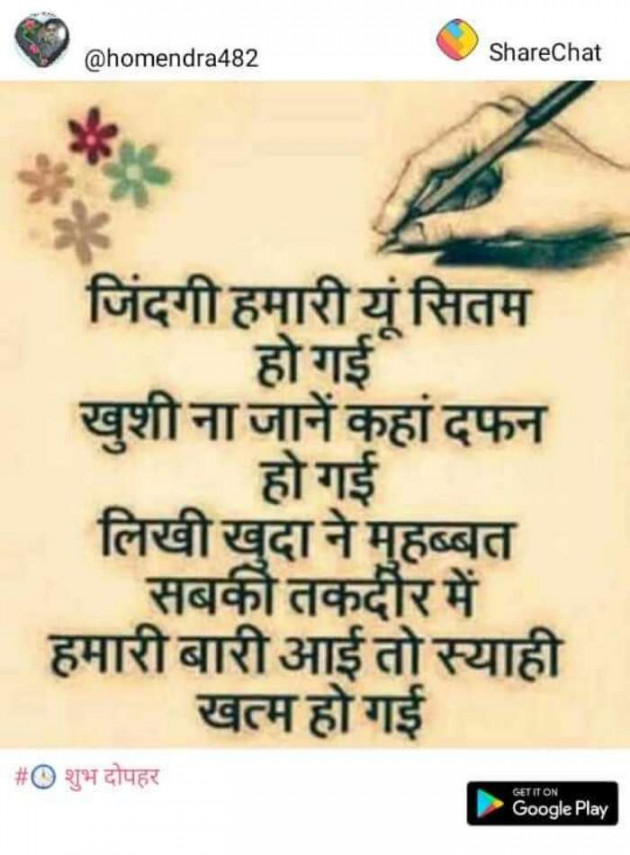 @homendra482
ShareChat
जिंदगी हमारी यूं सितम
हो गई
खुशी ना जानें कहां दफन
हो गई
लिखी खुदा ने मुहब्बत
सबकी तकदीर में
हमारी बारी आई तो स्याही
खत्म हो गई
#🕓 शुभ दोपहर
GET IT ON
Google Play